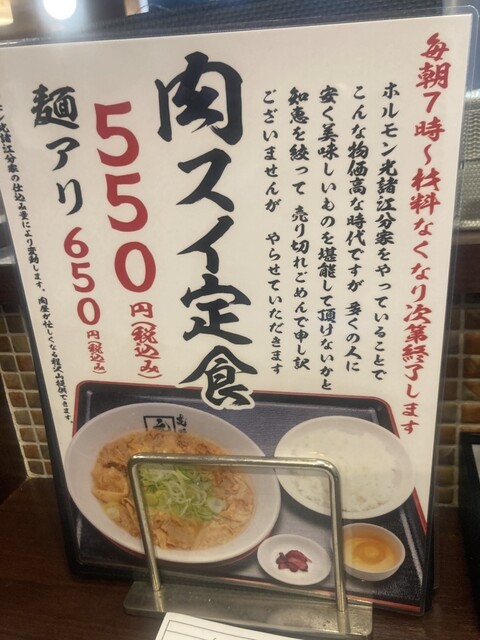 毎朝7時〜材料なくなり次第終了します
ホルモン光諸江分家をやっていることで
こんな物価高な時代ですが 多くの人に
安く美味しいものを堪能して頂けないかと
知恵を絞って 売り切れごめんで申し訳
ございませんが やらせていただきます
肉スイ定食
550円(税込み)
麺アリ 650円(税込み)
ホルモン光諸江分家の仕込み量により変動します。肉屋が忙しくなる程沢山提供できます。